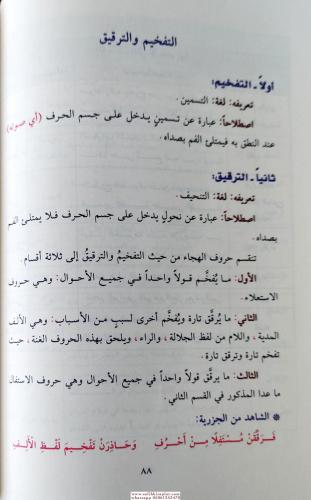 التفخيم والترقيق
أولاً ـ التفخيم:
تعريفه: لغة: التسمين.
اصطلاحاً: عبارة عن تسمين يدخل على جسم الحرف (أي صوته)
عند النطق به فيمتلئ الفم بصداه.
ثانياً ـ الترقيق:
تعريفه: لغة: التنحيف.
اصطلاحاً: عبارة عن نحول يدخل على جسم الحرف فلا يمتلئ الفم
بصداه.
تنقسم حروف الهجاء من حيث التفخيم والترقيق إلى ثلاثة أقسام.
الأول: ما يُفخَّم قولاً واحداً في جميع الأحوال: وهي حروف
الاستعلاء.
الثاني: ما يُرقَّق تارة ويُفخَّم أخرى لسبب من الأسباب: وهي الألف
المدية، واللام من لفظ الجلالة، والراء، ويلحق بهذه الحروف الغنة، حيث
تفخم تارة وترقق تارة.
الثالث: ما يرقَّق قولاً واحداً في جميع الأحوال وهي حروف الاستفال
ما عدا المذكور في القسم الثاني.
* الشاهد من الجزرية:
فَرَقِّقَنْ مُسْتَفِلًا مِنْ أَحْرُفِ وَحَاذِرَنْ تَفْخِيمَ لَفْظِ الْأَلِفِ
٨٨